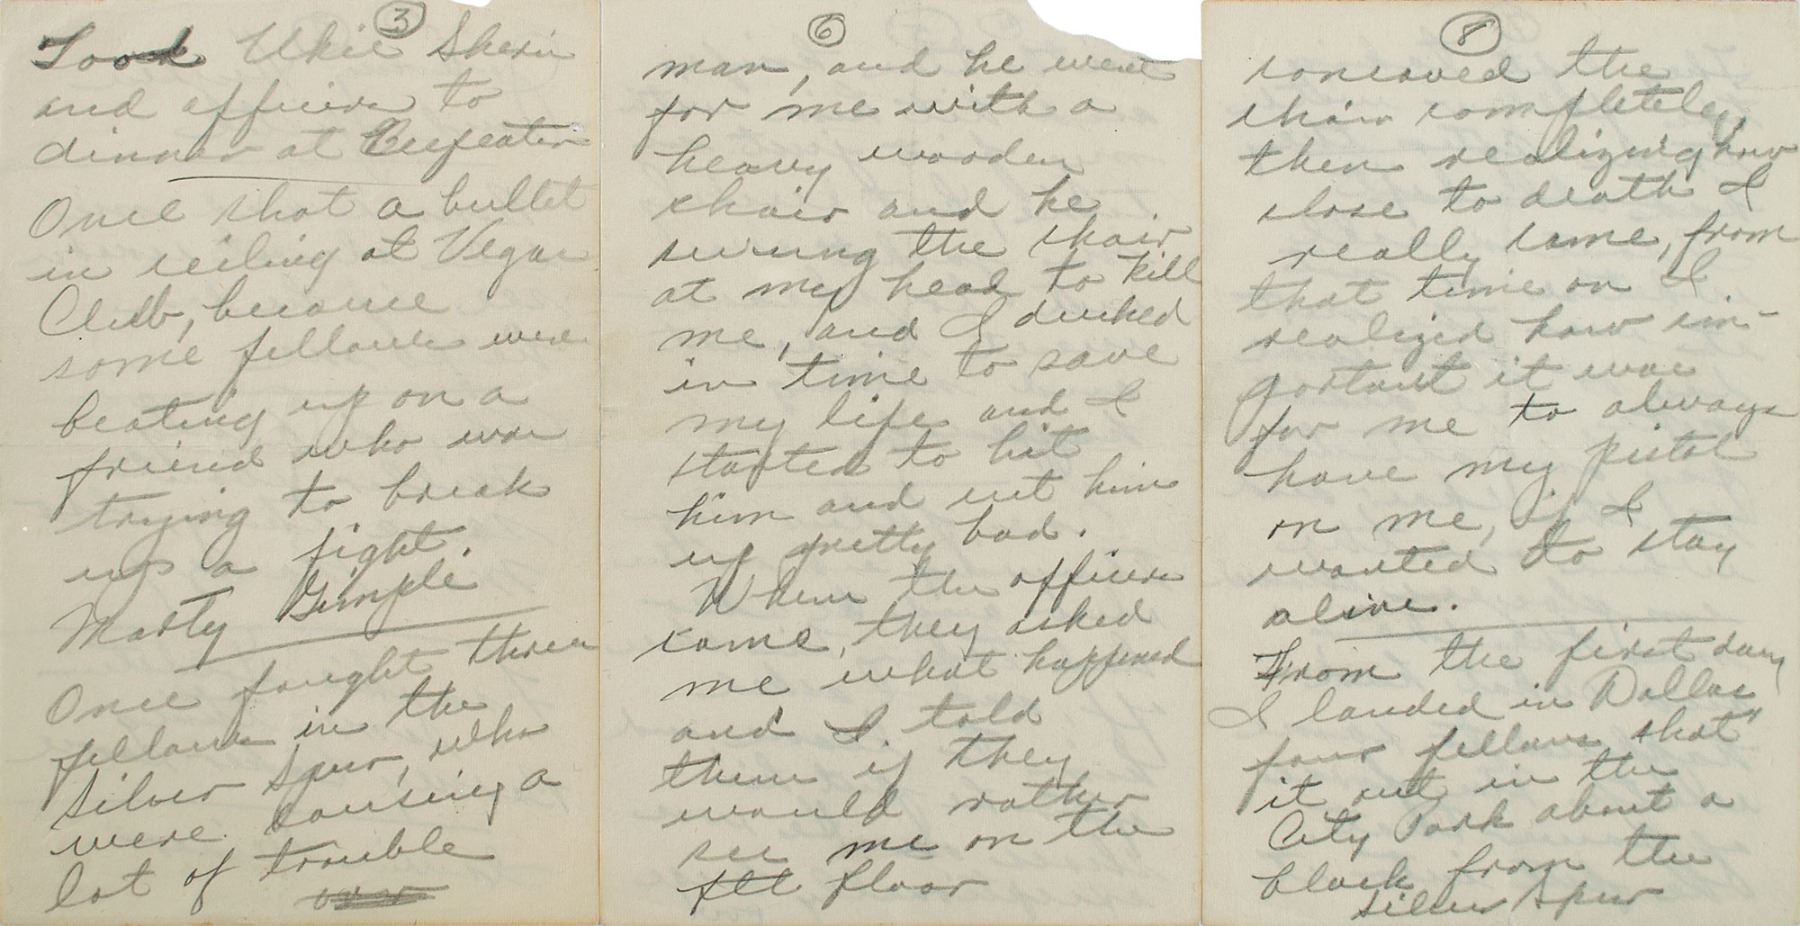 3
Took Ukie Sherin
and officers to
dinner at
Once shot a bullet
in ceiling at Vegas
Club, because
some fellows were
beating up on a
friend who was
trying to break
up a fight.
Marty Gimple
Once fought three
fellows in the
Silver Spur, who
were causing a
lot of trouble
over
6
man, and he went
for me with a
heavy wooden
chair and he
swung the chair
at my head to kill
me, and I ducked
in time to save
my life and I
started to hit
him and cut him
up pretty bad.
When the officers
came, they asked
me what happened
and I told
them if they
would rather
see me on the
floor
8
the
chair completely,
then realizing how
close to death I
really came, from
that time on I
realized how im-
portant it was
for me to always
have my pistol
on me, if I
wanted to stay
alive.
From the first day
I landed in Dallas
four fellows "shot"
it out in the
City Park about a
block from the
Silver Spur